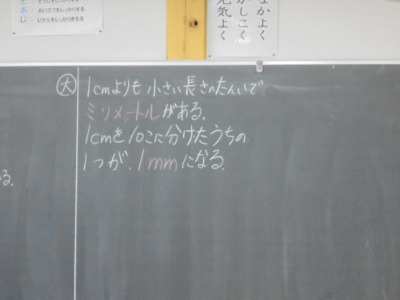 なかよく
かしこく
元気よく
大
1cmよりも小さい長さのたんいで
ミリメートルがある。
1cmを10こに分けたうちの
1つが、1mmになる。
る。